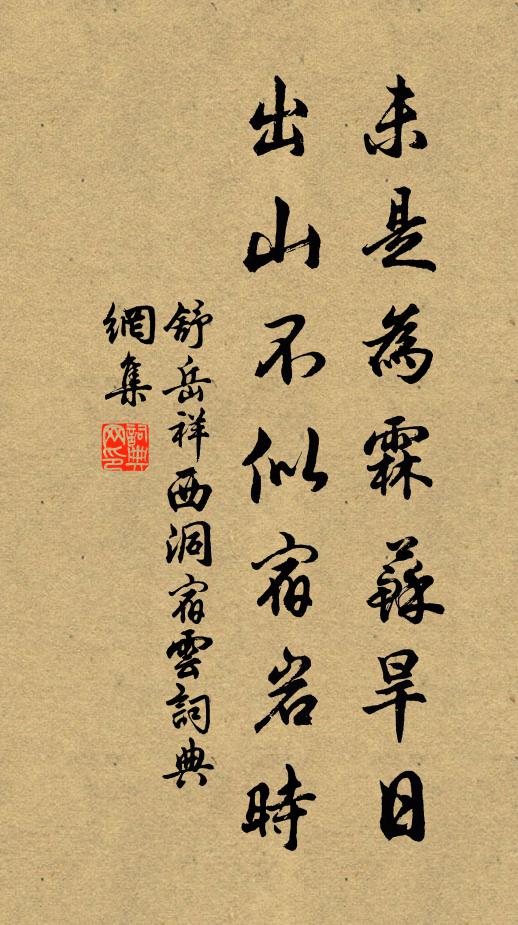 未是為霖蘇旱日
出山不似宿岩時
舒岳祥西洞宿雲詞典
網集
詞典
网印